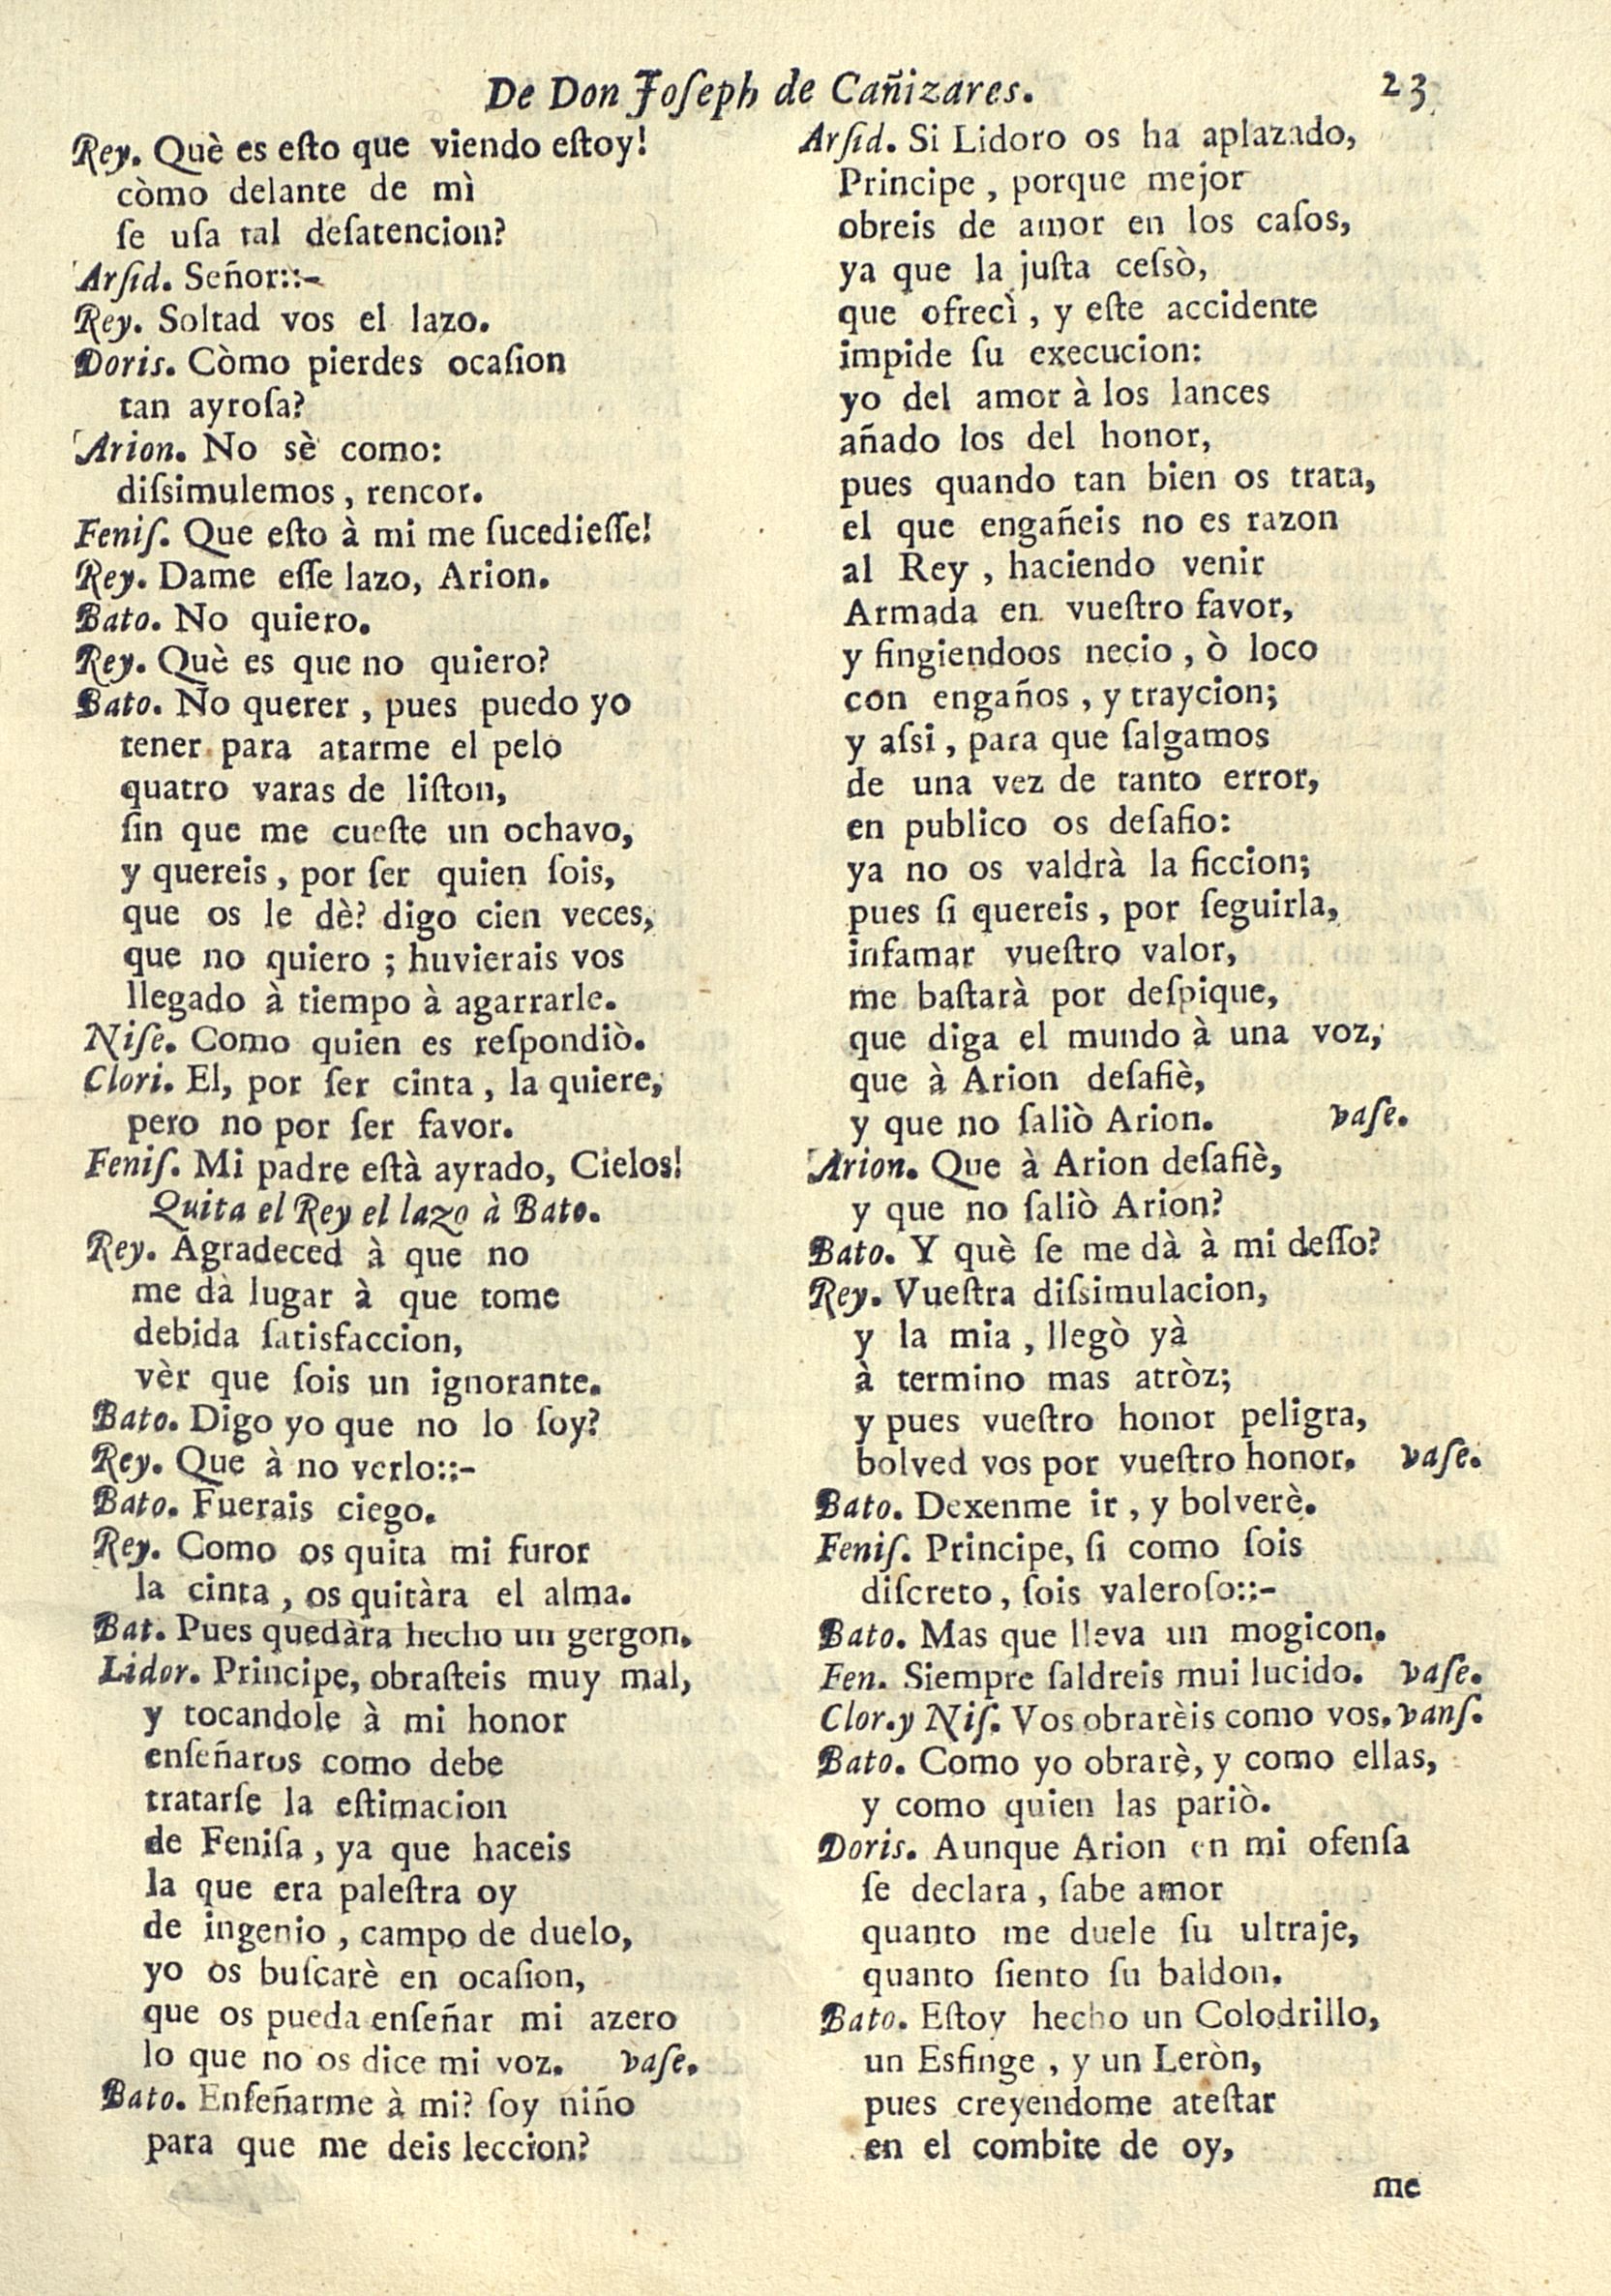 De Don Joſeph de Cañizares.
23
Rey. Què es eſto que viendo eſtoy!
còmo delante de mì
ſe uſa tal deſatencion?
Arſid. Señor::-
Rey. Soltad vos el lazo.
Doris. Còmo pierdes ocaſion
tan ayroſa?
Arion. No sè como:
diſsimulemos, rencor.
Feniſ. Que eſto à mi me ſucedieſſe!
Rey. Dame eſſe lazo, Arion.
Bato. No quiero.
Rey. Què es que no quiero?
Bato. No querer, pues puedo yo
tener para atarme el pelo
quatro varas de liſton,
ſin que me cueſte un ochavo,
y quereis, por ſer quien ſois,
que os le dè? digo cien veces,
que no quiero; huvierais vos
llegado à tiempo à agarrarle.
Niſe. Como quien es reſpondiò.
Clori. El, por ſer cinta, la quiere,
pero no por ſer favor.
Feniſ. Mi padre eſtà ayrado, Cielos!
Quita el Rey el lazo à Bato.
Rey. Agradeced à que no
me dà lugar à que tome
debida ſatisfaccion,
vèr que ſois un ignorante.
Bato. Digo yo que no lo ſoy?
Rey. Que à no verlo::-
Bato. Fuerais ciego.
Rey. Como os quita mi furor
la cinta, os quitàra el alma.
Bat. Pues quedàra hecho un gergon.
Lidor. Principe, obraſteis muy mal,
y tocandole à mi honor
enſeñaros como debe
tratarſe la eſtimacion
de Feniſa, ya que haceis
la que era paleſtra oy
de ingenio, campo de duelo,
yo os buſcarè en ocaſion,
que os pueda enſeñar mi azero
lo que no os dice mi voz. vaſe.
Bato. Enſeñarme à mi? ſoy niño
para que me deis leccion?
Arſid. Si Lidoro os ha aplazado,
Principe, porque mejor
obreis de amor en los caſos,
ya que la juſta ceſsò,
que ofrecì, y eſte accidente
impide ſu execucion:
yo del amor à los lances
añado los del honor,
pues quando tan bien os trata,
el que engañeis no es razon
al Rey, haciendo venir
Armada en vueſtro favor,
y fingiendoos necio, ò loco
con engaños, y traycion;
y aſsi, para que ſalgamos
de una vez de tanto error,
en publico os deſafio:
ya no os valdrà la ficcion;
pues ſi quereis, por ſeguirla,
infamar vueſtro valor,
me baſtarà por deſpique,
que diga el mundo à una voz,
que à Arion deſafiè,
y que no ſaliò Arion. vaſe.
Arion. Que à Arion deſafiè,
y que no ſaliò Arion?
Bato. Y què ſe me dà à mi deſſo?
Rey. Vueſtra diſsimulacion,
y la mia, llegò yà
à termino mas atròz;
y pues vueſtro honor peligra,
bolved vos por vueſtro honor. vaſe.
Bato. Dexenme ir, y bolverè.
Feniſ. Principe, ſi como ſois
diſcreto, ſois valeroſo::-
Bato. Mas que lleva un mogicon.
Fen. Siempre ſaldreis mui lucido. vaſe.
Clor. y Niſ. Vos obrarèis como vos. vanſ.
Bato. Como yo obrarè, y como ellas,
y como quien las pariò.
Doris. Aunque Arion en mi ofenſa
ſe declara, ſabe amor
quanto me duele ſu ultraje,
quanto ſiento ſu baldon.
Bato. Eſtoy hecho un Colodrillo,
un Esfinge, y un Leròn,
pues creyendome ateſtar
en el combite de oy,
me